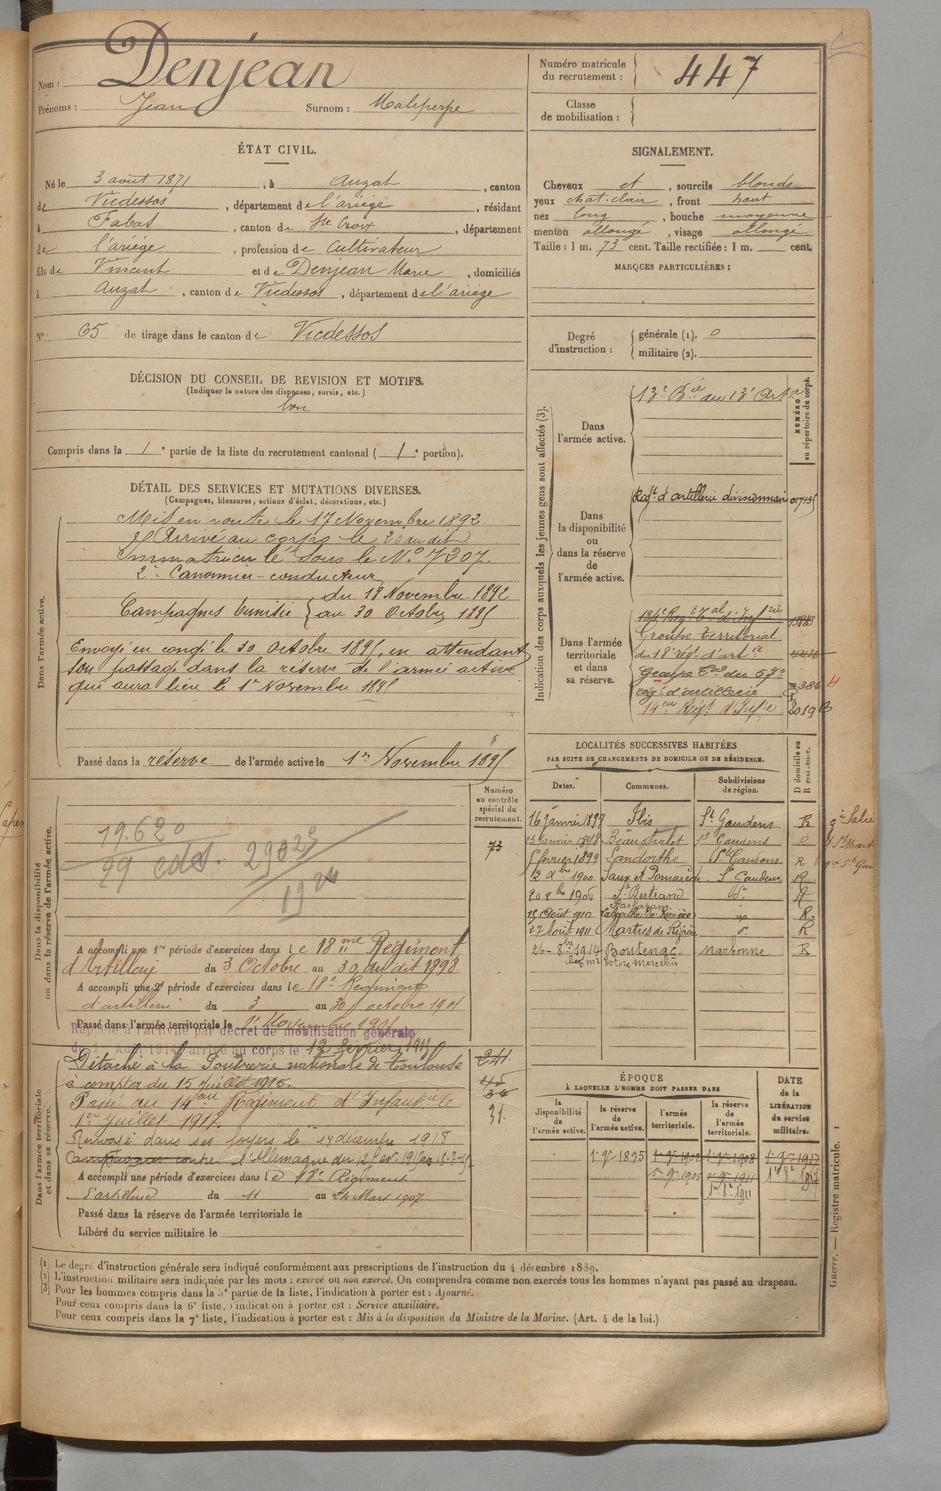 Nom : Denjean
Prénoms : Jean Surnom : Maleperpe
Numéro matricule du recrutement : 447
Classe de mobilisation :
ÉTAT CIVIL.
Né le 3 août 1871, à Auzat, canton
de Vicdessos, département de l'ariège, résidant
à Fabas, canton de Ste Croix, département
de l'ariége, profession de Cultivateur
fils de Vincent et de Denjean Marie, domiciliés
à Auzat, canton de Vicdessos, département de l'ariége
N° 65 de tirage dans le canton de Vicdessos
SIGNALEMENT.
Cheveux et, sourcils blonds
yeux chat. clair, front haut
nez long, bouche moyenne
menton allongé, visage allongé
Taille : 1 m. 73 cent. Taille rectifiée : 1 m. cent.
MARQUES PARTICULIÈRES :
Degré d'instruction : générale (1). 0
militaire (2).
DÉCISION DU CONSEIL DE REVISION ET MOTIFS.
(Indiquer la nature des dispenses, sursis, etc.)
bon
Compris dans la 1e partie de la liste du recrutement cantonal (1e portion).
DÉTAIL DES SERVICES ET MUTATIONS DIVERSES.
(Campagnes, blessures, actions d'éclat, décorations, etc.)
Dans l'armée active.
Mis en route le 17 Novembre 1892.
Arrivé au corps le 20 du dit
Immatriculé sous le No 7207.
2e Canonnier-conducteur
Campagnes tunisie { du 18 Novembre 1892
au 30 Octobre 1895
Envoyé en congé le 30 octobre 1895, en attendant
son passage dans la réserve de l'armé active
qui aura lieu le 1er Novembre 1895
Passé dans la réserve de l'armée active le 1er Novembre 1895
Indication des corps auxquels les jeunes gens sont affectés (3).
NUMÉRO au répertoire du corps.
Dans l'armée active.
13e Bie au 13e Art
Dans la disponibilité ou dans la réserve de l'armée active.
Régt d'artillerie divisionnaire
Dans l'armée territoriale et dans sa réserve.
Groupe Territorial
du 18e rég. d'art
Groupe Tal du 57e
rég. d'artillerie 386
14eme Régt d'Infie 2019
LOCALITÉS SUCCESSIVES HABITÉES
PAR SUITE DE CHANGEMENTS DE DOMICILE OU DE RÉSIDENCE.
Dates. Communes. Subdivisions de région. D domicile ou R résidence.
16 janvier 1897 Ilis St Gaudens R
Beauchalot St Gaudens R
5 février 1899 Landorthe St Gaudens R
1900 Saux et Pomarède St Gaudens R
St Bertrand do R
15 août 1910 Labarthe de Rivière R
27 Août 1911 Martres de Rivière do R
26 - 8bre 1914 Boutenac Narbonne R
Dans la disponibilité ou dans la réserve de l'armée active.
Numéro au contrôle spécial du recrutement.
73
19.620
A accompli une 1re période d'exercices dans le 18me Régiment
d'Artillerie du 3 Octobre au 30 du dit 1898
A accompli une 2e période d'exercices dans le 18e Régiment
d'artillerie du 3 au 30 octobre 1901
Passé dans l'armée territoriale le
Rappelé à l'activité par décret de mobilisation générale
arrivé au corps le 12 février 1915
Dans l'armée territoriale et dans sa réserve.
Détaché à la Poudrerie nationale de Toulouse
à compter du 15 juillet 1915.
Passé au 14eme Régiment d'Infanterie le
1er juillet 1917.
Renvoyé dans ses foyers le 17 décembre 1918
Campagne contre l'Allemagne
A accompli une période d'exercices dans le 18e Régiment
d'artillerie du 11 au 24 Mars 1907
Passé dans la réserve de l'armée territoriale le
Libéré du service militaire le
241
31.
ÉPOQUE
À LAQUELLE L'HOMME DOIT PASSER DANS
la disponibilité de l'armée active. la réserve de l'armée active. l'armée territoriale. la réserve de l'armée territoriale.
DATE de la LIBÉRATION du service militaire.
1 9bre 1895
(1) Le degré d'instruction générale sera indiqué conformément aux prescriptions de l'instruction du 4 décembre 1889.
(2) L'instruction militaire sera indiquée par les mots : exercé ou non exercé. On comprendra comme non exercés tous les hommes n'ayant pas passé au drapeau.
(3) Pour les hommes compris dans la 5e partie de la liste, l'indication à porter est : Ajourné.
Pour ceux compris dans la 6e liste, l'indication à porter est : Service auxiliaire.
Pour ceux compris dans la 7e liste, l'indication à porter est : Mis à la disposition du Ministre de la Marine. (Art. 4 de la loi.)
Guerre. — Registre matricule. 1